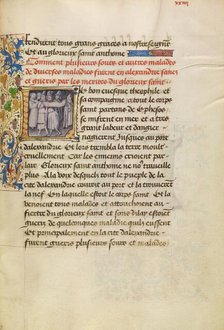 rendirent tous grans graces a nostre seignr
Et au glorieux saint anthoine
Comment plusieurs sours et autres malades
de diverses maladies furent en alexandrie sanes
et gueris par les merites du glorieux saint
e bon euesque theophile et
sa compaignie atout le corps
saint partans de persse
se mirent en mer et a tres
grant labeur et dangier
nagierent Jusques au port
dalexandrie Et lors trembla la terre moult
cruellement Car les ennemis crioient par
lair Glorieux saint anthoine nous traueilles
plus A la voix desquelz tout le pueple de la
cite dalexandrie couroit au port et la trouuerent
la nef En laquelle estoit le corps saint Et la
venoient tous malades et attouchoient au
fiertre du glorieux saint et sans delay estoient
gueris de quelconques maladie quilz eussent
Et principalement en la cite dalexandrie
furent gueris plusieurs sours et malades